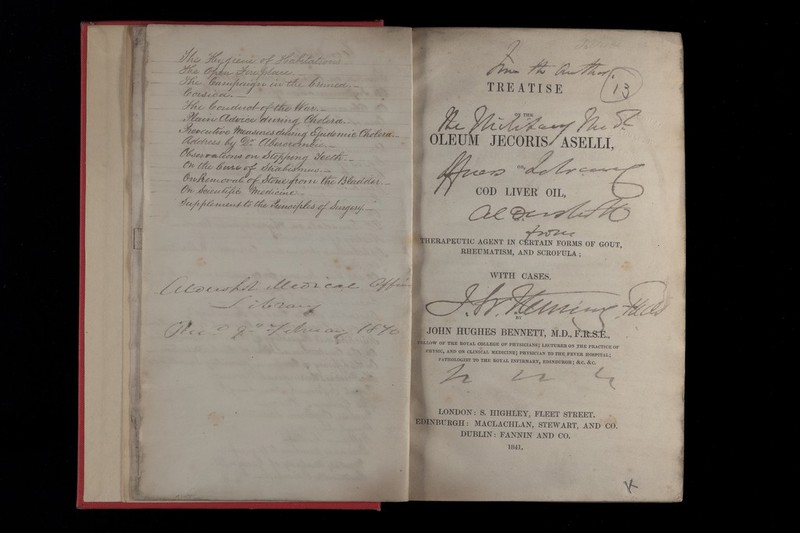 The Hygiene of Habitations
The Open Fireplace
The Campaign in the Crimea
Corsica
The Conduct of the War
Plain Advice during Cholera
Preventive Measures during Epidemic Cholera
Address by Dr. Abercrombie
Observations on Stopping Teeth
On the Cure of Strabismus
On Removal of Stone from the Bladder
On Scientific Medicine
Supplement to the Principles of Surgery
Aldershot Medical Officers
Library
February 1870
From the Author
13
TREATISE
ON THE
The Military Med.
OLEUM JECORIS ASELLI,
Officers Library
OR
COD LIVER OIL,
Aldershott
from
THERAPEUTIC AGENT IN CERTAIN FORMS OF GOUT,
RHEUMATISM, AND SCROFULA;
WITH CASES.
J. W. Fleming
BY
JOHN HUGHES BENNETT, M.D., F.R.S.E.,
FELLOW OF THE ROYAL COLLEGE OF PHYSICIANS; LECTURER ON THE PRACTICE OF
PHYSIC, AND ON CLINICAL MEDICINE; PHYSICIAN TO THE FEVER HOSPITAL;
PATHOLOGIST TO THE ROYAL INFIRMARY, EDINBURGH; &c. &c.
LONDON: S. HIGHLEY, FLEET STREET.
EDINBURGH: MACLACHLAN, STEWART, AND CO.
DUBLIN: FANNIN AND CO.
1841.